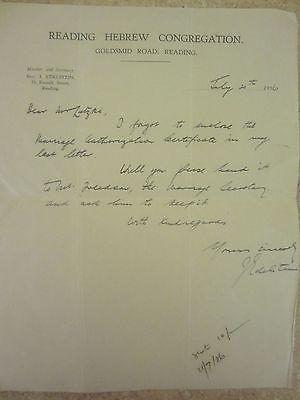 READING HEBREW CONGREGATION.
GOLDSMID ROAD, READING.
Minister and Secretary
Rev. J. EDELSTEIN,
Russell Street,
Reading.
July 20th 1926
Dear Mr
I forgot to enclose the
Marriage Authorization Certificate in my
last letter.
Will you please hand it
to Mr. the Marriage Secretary
and ask him to keep it
With Kind regards
Yours sincerely
J Edelstein